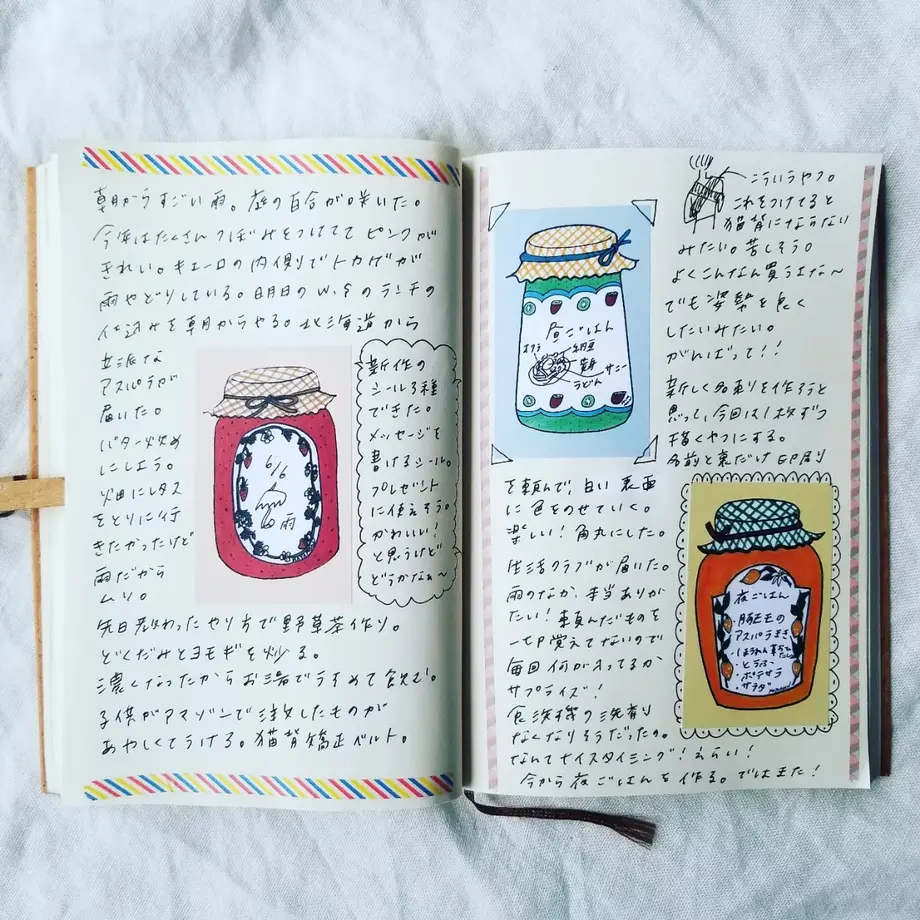 朝からすごい雨。庭の百合が咲いた。
今年はたくさんつぼみをつけてて ピンクが
きれい。キエーロの内側でトカゲが
雨やどりしている。明日の W.Sのランチの
仕込みを朝からやる。北海道から
立派な
アスパラが
届いた。
バター炒め
にしよう。
畑にレタス
をとりに行
きたかったけど
雨だから
ムリ。
新作の
シール3種
できた。
メッセージを
書けるシール。
プレゼント
に使えそう。
かわいい!
と思うけど
どうかなぁ〜
6/6
雨
先日教わったやり方で野草茶作り。
どくだみとヨモギを炒る。
濃くなったからお湯でうすめて飲む。
子供がアマゾンで注文したものが
あやしくてうける。猫背矯正ベルト。
こういうやつ。
これをつけてると
猫背にならない
みたい。苦しそう。
よくこんなん買うよな〜
でも姿勢を良く
したいみたい。
がんばって!!
昼ごはん
オクラ
納豆
サニー
うどん
新しく名刺を作ろうと
思って、今回は1枚ずつ
描くやつにする。
名前と裏だけ印刷
を頼んで、白い表面
に色をのせていく。
楽しい! 角丸にした。
生活クラブが届いた。
雨のなか、本当ありが
たい! 頼んだものを
一切覚えてないので
毎回何が入ってるか
サプライズ!
食洗機の洗剤
なくなりそうだったの。
なんてナイスタイミング! えらい!
今から夜ごはんを作る。ではまた!
夜ごはん
・豚モモの
アスパラまき
・ほうれん草おひたし
・とうふ
・ポテサラ
・サラダ